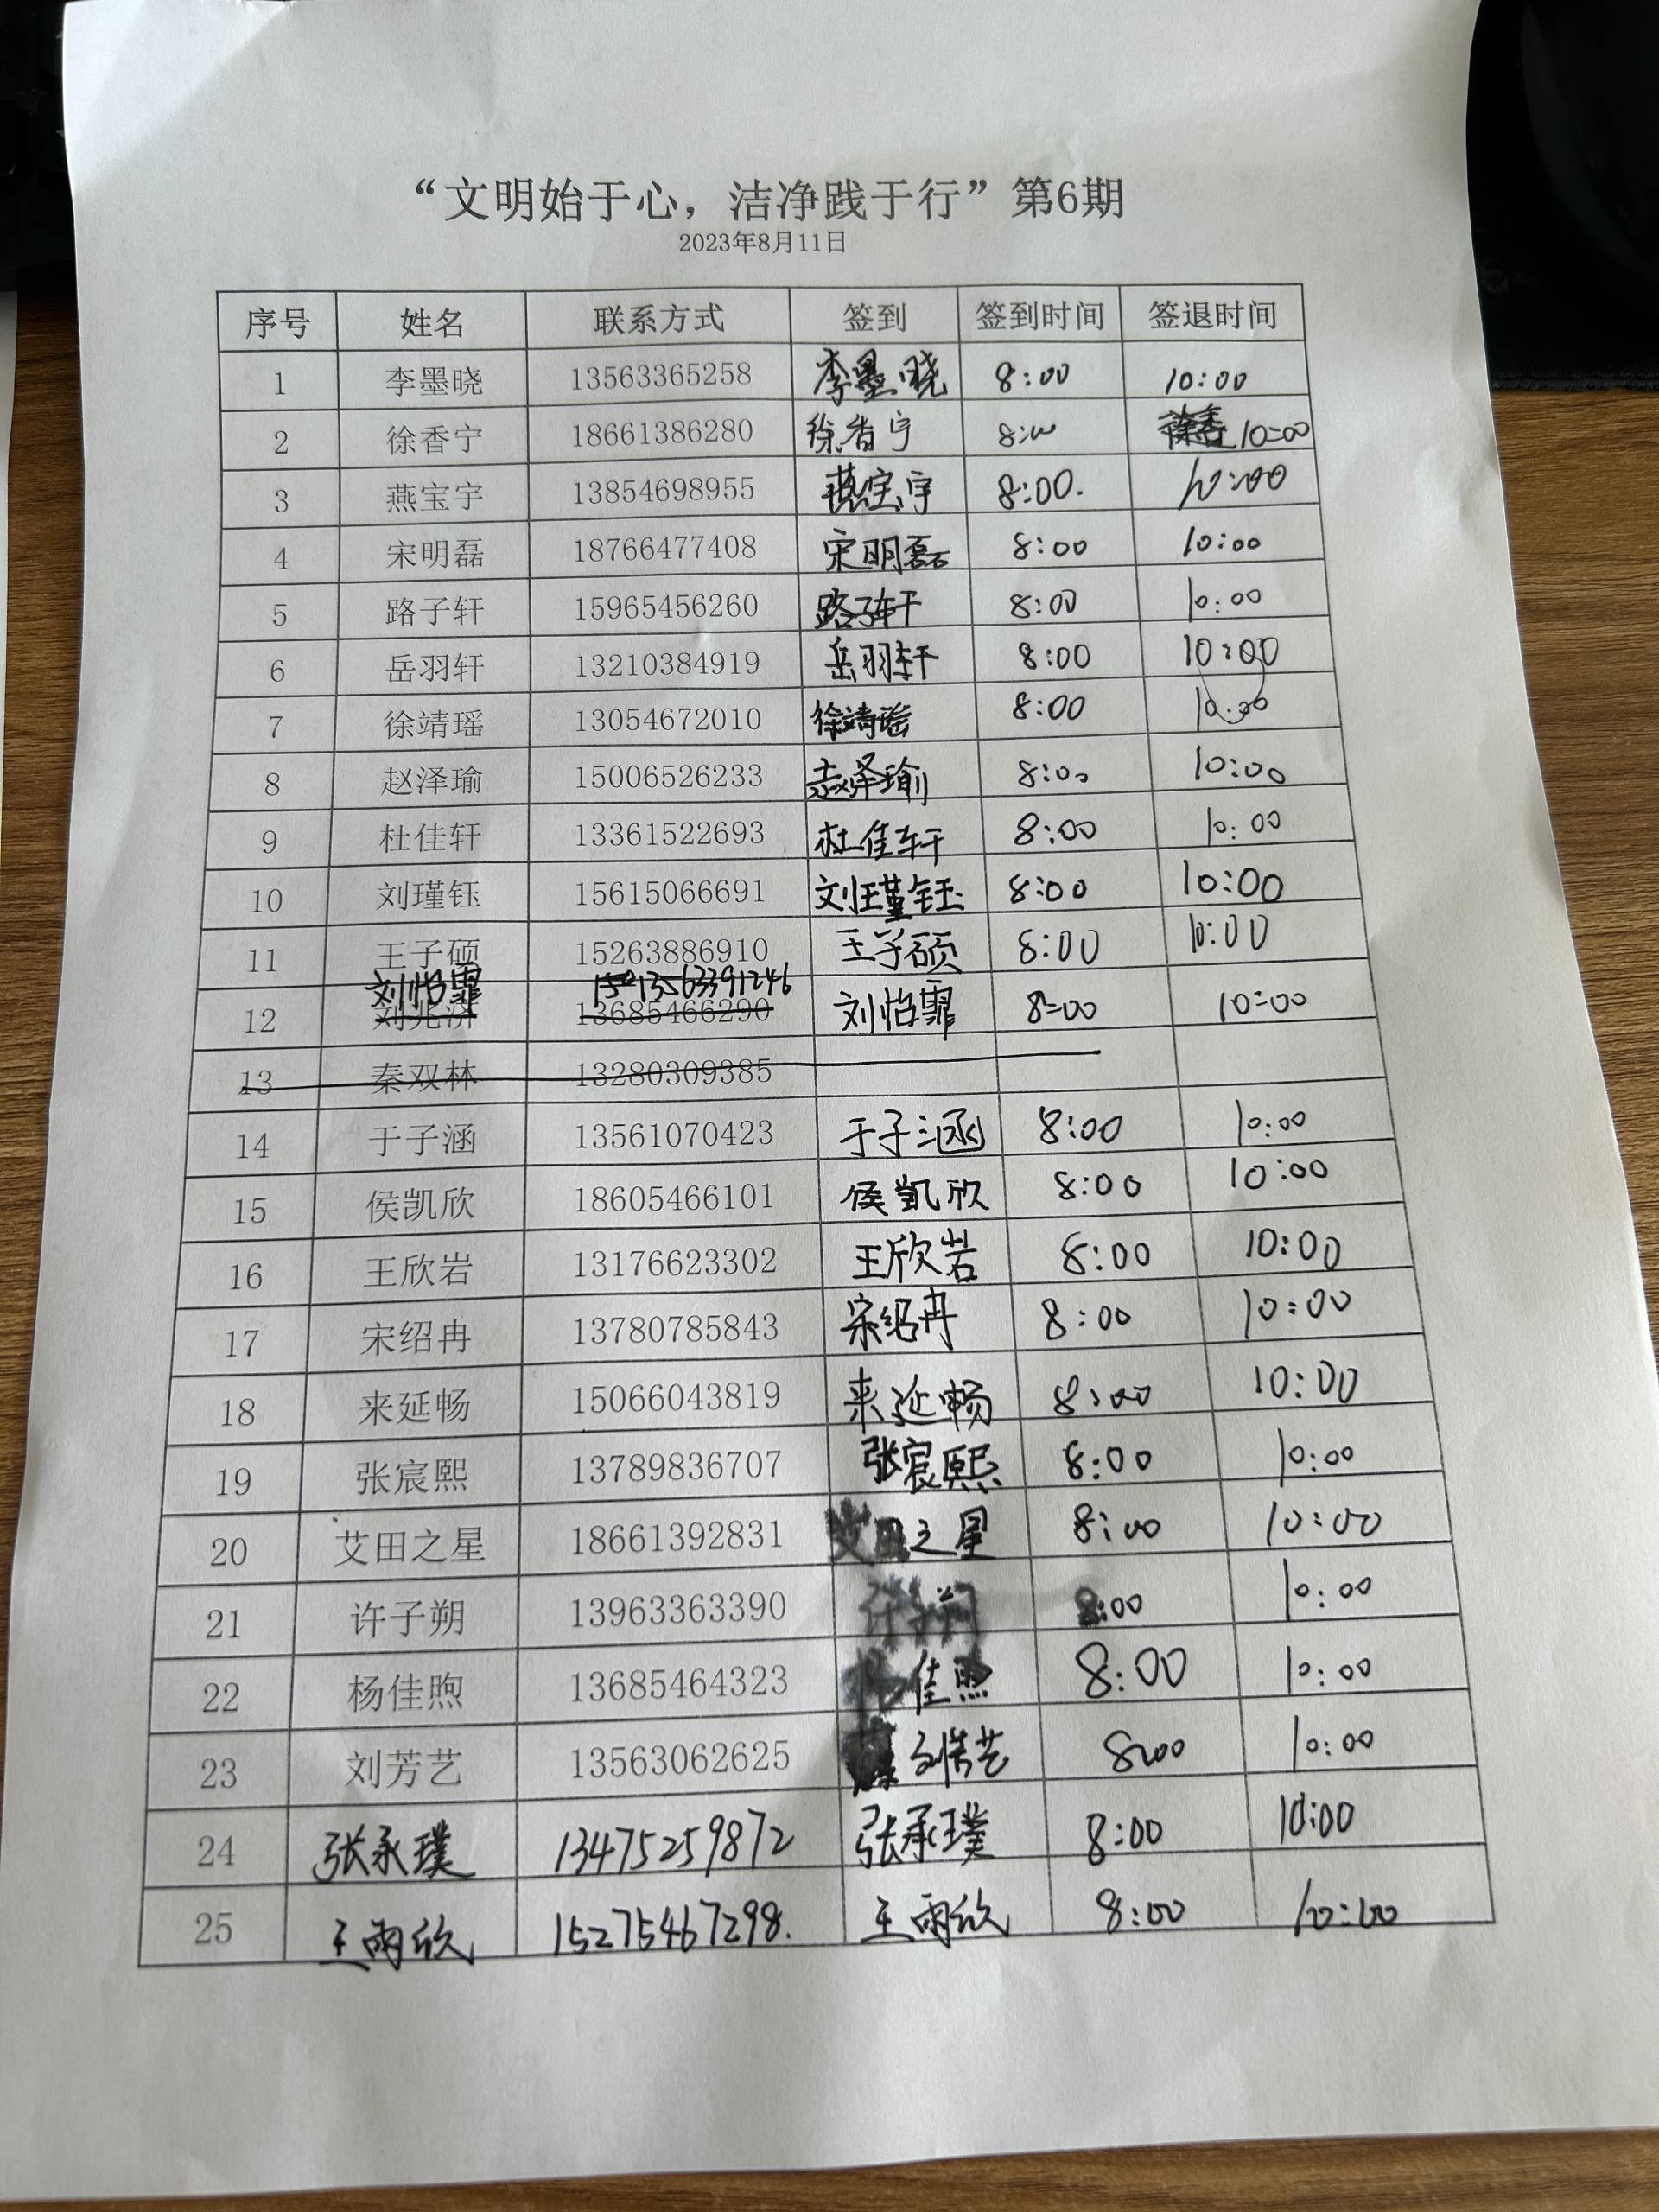 “文明始于心，洁净践于行”第6期
2023年8月11日
序号 姓名 联系方式 签到 签到时间 签退时间
1 李墨晓 13563365258 李墨晓 8:00 10:00
2 徐香宁 18661386280 徐香宁 8:00 徐香 10:00
3 燕宝宇 13854698955 燕宝宇 8:00. 10:00
4 宋明磊 18766477408 宋明磊 8:00 10:00
5 路子轩 15965456260 路子轩 8:00 10:00
6 岳羽轩 13210384919 岳羽轩 8:00 10:00
7 徐靖瑶 13054672010 徐靖瑶 8:00 10:00
8 赵泽瑜 15006526233 赵泽瑜 8:00 10:00
9 杜佳轩 13361522693 杜佳轩 8:00 10:00
10 刘瑾钰 15615066691 刘瑾钰 8:00 10:00
11 王子硕 15263886910 王子硕 8:00 10:00
刘怡霏 13563391246
12 刘兆济 13685466290 刘怡霏 8:00 10:00
13 秦双林 13280309385
14 于子涵 13561070423 于子涵 8:00 10:00
15 侯凯欣 18605466101 侯凯欣 8:00 10:00
16 王欣岩 13176623302 王欣岩 8:00 10:00
17 宋绍冉 13780785843 宋绍冉 8:00 10:00
18 来延畅 15066043819 来延畅 8:00 10:00
19 张宸熙 13789836707 张宸熙 8:00 10:00
20 艾田之星 18661392831 艾田之星 8:00 10:00
21 许子朔 13963363390 许子朔 8:00 10:00
22 杨佳煦 13685464323 杨佳煦 8:00 10:00
23 刘芳艺 13563062625 8:00 10:00
24 张承璞 13475259872 张承璞 8:00 10:00
25 王雨欣 15275467298. 王雨欣 8:00 10:00